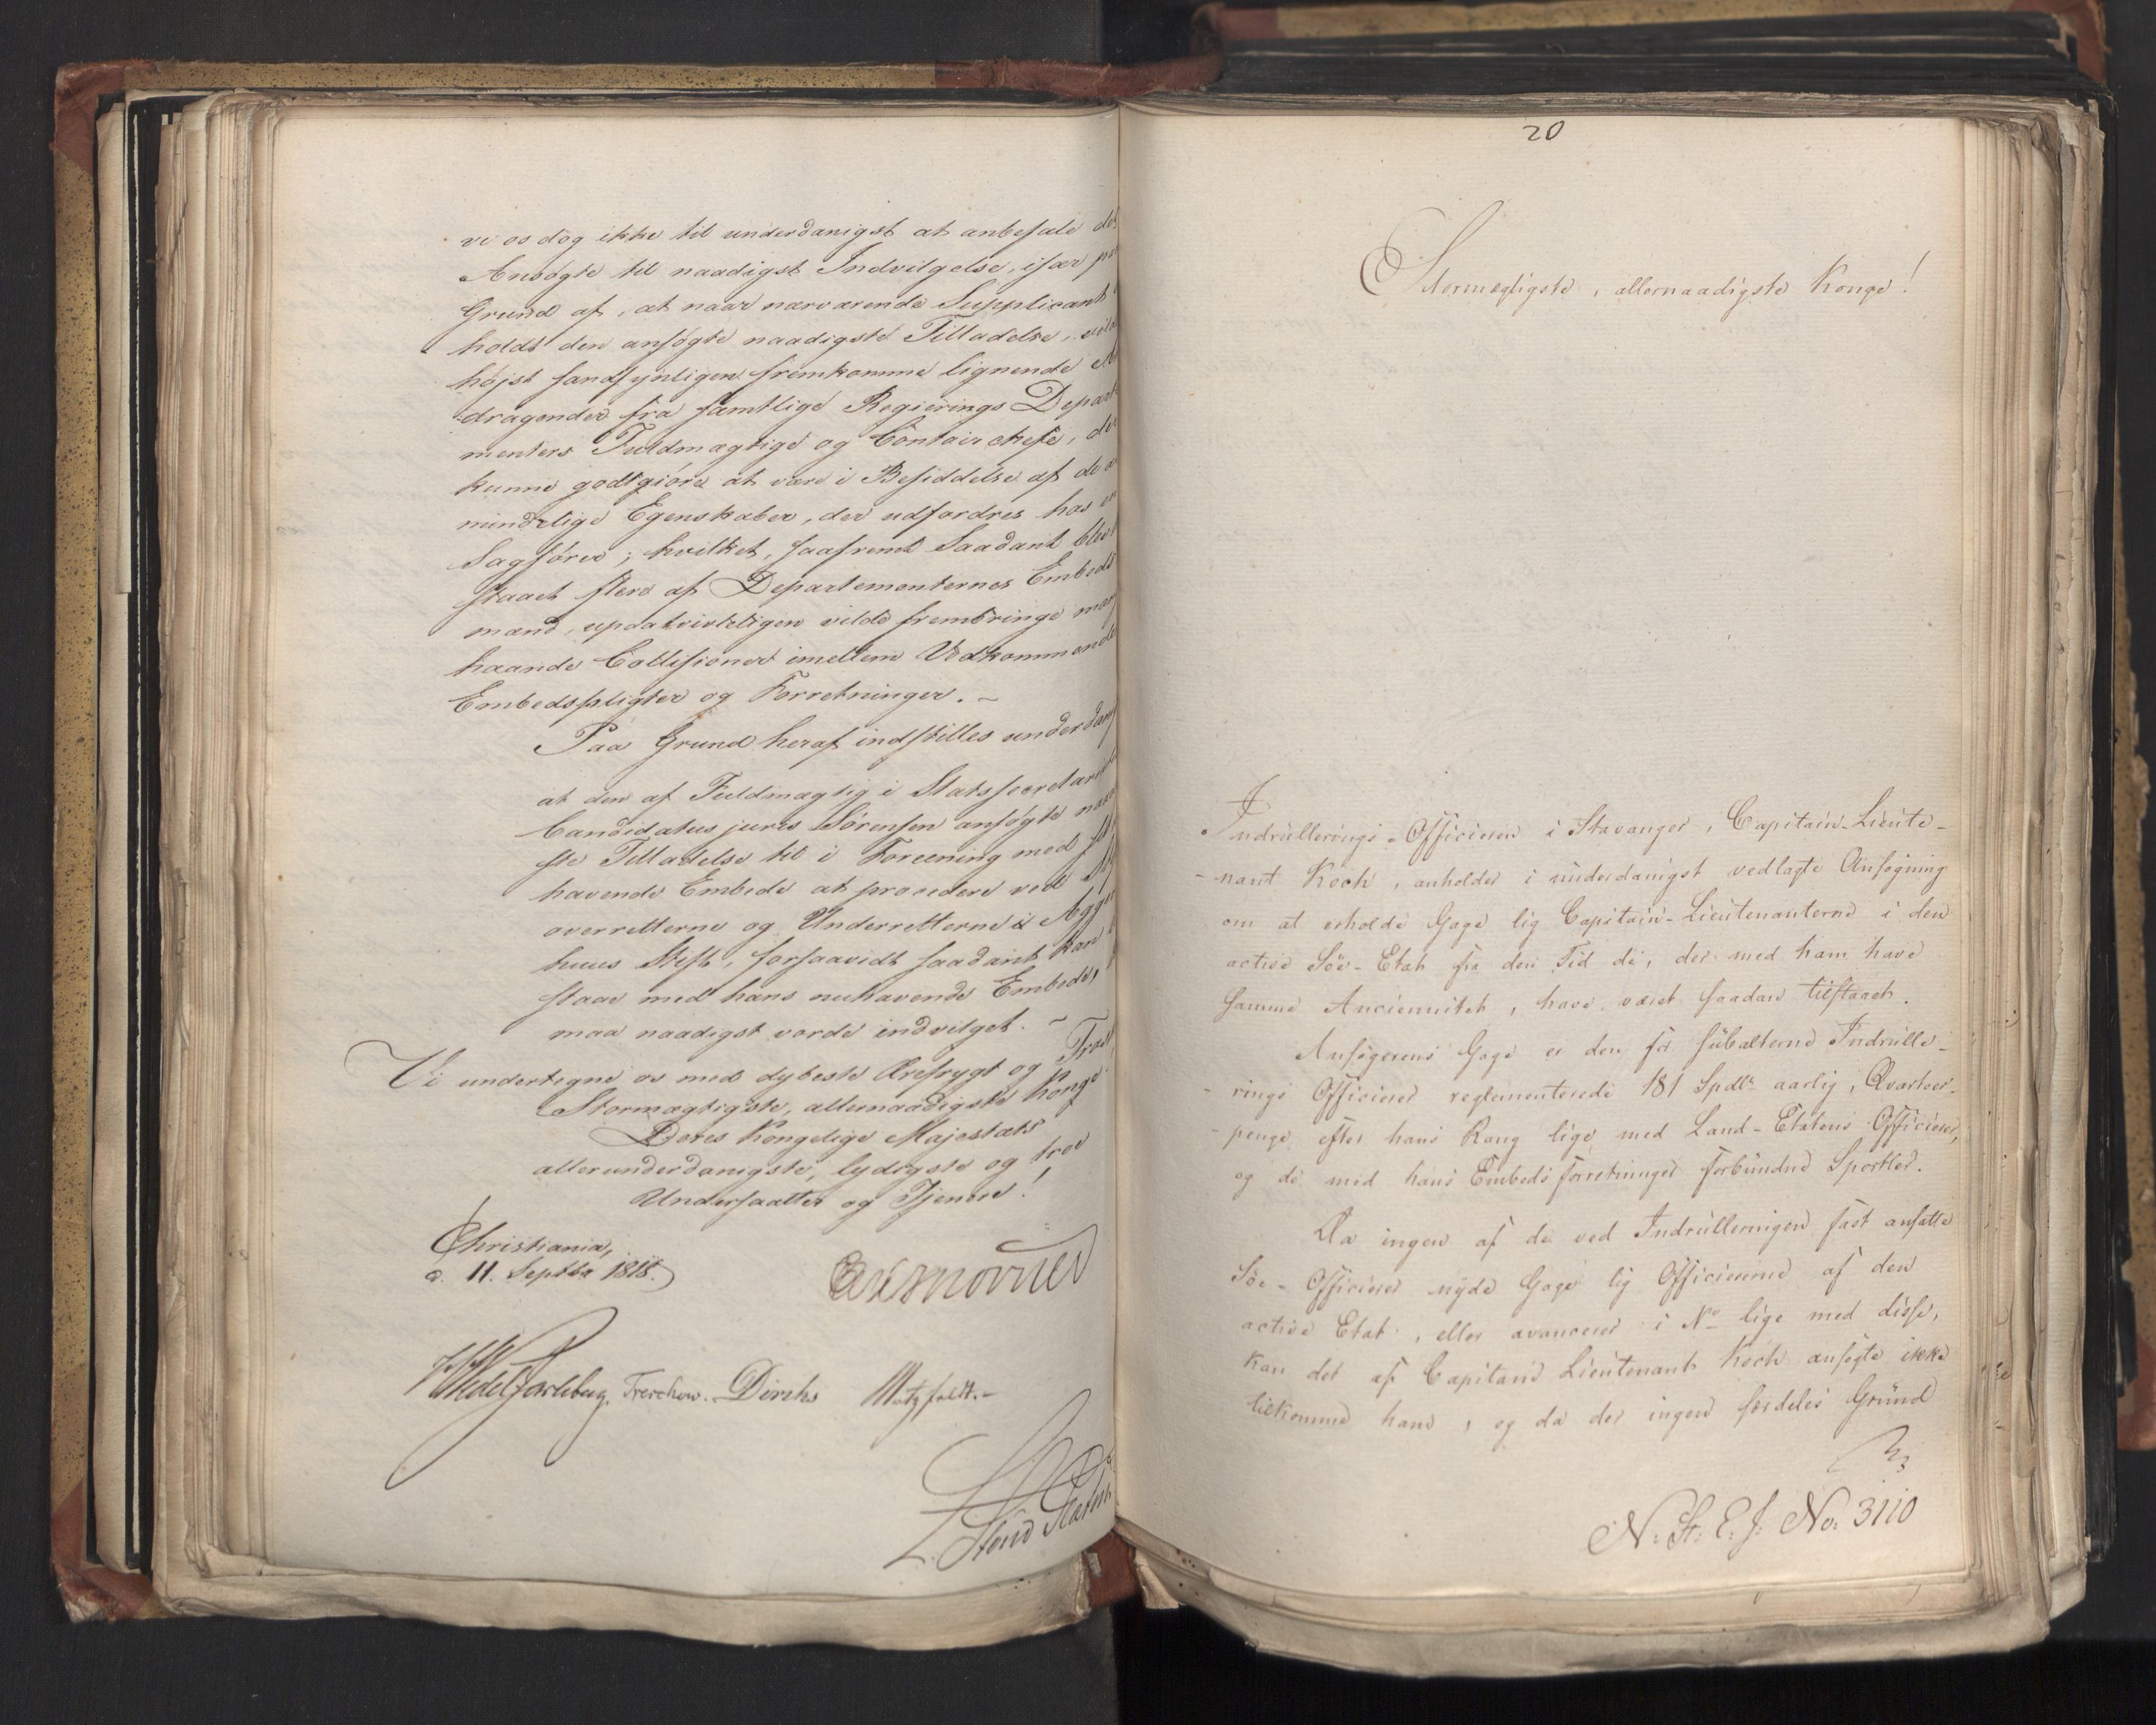 vi os dog ikke til underdanigst at anbefale det
Ansøgte til naadigst Indvilgelse, især paa
Grund af, at naar nærværende Supplicant
holdt den ansøgte naadigste Tilladelse, vilde
højst sandsynligen fremkomme lignende
dragender fra samtlige Regjerings Departe
menters Fuldmægtige og Contoirchefer, der
kunne godtgiøre at være i Besiddelse af de
mindelige Egenskaber, der udfordres hos en
Sagfører; hvilket, saafremt Saadant blev
staaet flere af Departementernes Embeds
mænd, upaatvivleligen vilde frembringe
haande Collisioner imellem Vedkommende
Embedspligter og Forretninger. ~
Paa Grund heraf indstilles underdan
at den af Fuldmægtig i Statssecretari
Candidatus juris Sørensen ansøgte naa
ste Tilladelse til i Forening med
havende Embede at procedere ved
overretterne og Underretterne i Agger
huus Stift, forsaavidt saadant kan
staae med hans nuhavende Embede,
maa naadigst vorde indvilget. ~
Vi undertegne os med dybeste Ærefrygt og Troe
Stormægtigste, allernaadigste Konge
Deres Kongelige Majestæts
allerunderdanigste, lydigste og troe
Undersaatter og Tjenere!
Christiania,
d. 11. Septbr 1818.
Wedel Jarlsberg. Treschow. Diriks Motzfeldt.-
20
Stormægtigste, allernaadigste Konge!
Indrullerings-Officieren i Stavanger, Capitain-Lieute-
-nant Koch, anholder i underdanigst vedlagte Ansøgning
om at erholde Gage lig Capitain-Lieutenanterne i den
active Söe-Etat fra den Tid de, der med ham have
samme Anciennitet, have været saadan tilstaaet.
Ansøgerens Gage er den for subalterne Indrulle-
-rings Officierer reglementerede 181 Spdlr aarlig, Qvarteer-
-penge efter hans Rang lige med Land-Etatens Officierer,
og de med hans Embedsforretninger forbundne Sportler.
Da ingen af de ved Indrulleringen fast ansatte
Söe-Officierer nyde Gage lig Officiererne af den
active Etat, eller avancerer i No lige med disse,
kan det af Capitain Lieutenant Koch ansøgte ikke
tilkomme ham, og da der ingen særdeles Grund
N. St. E. J. No. 3110